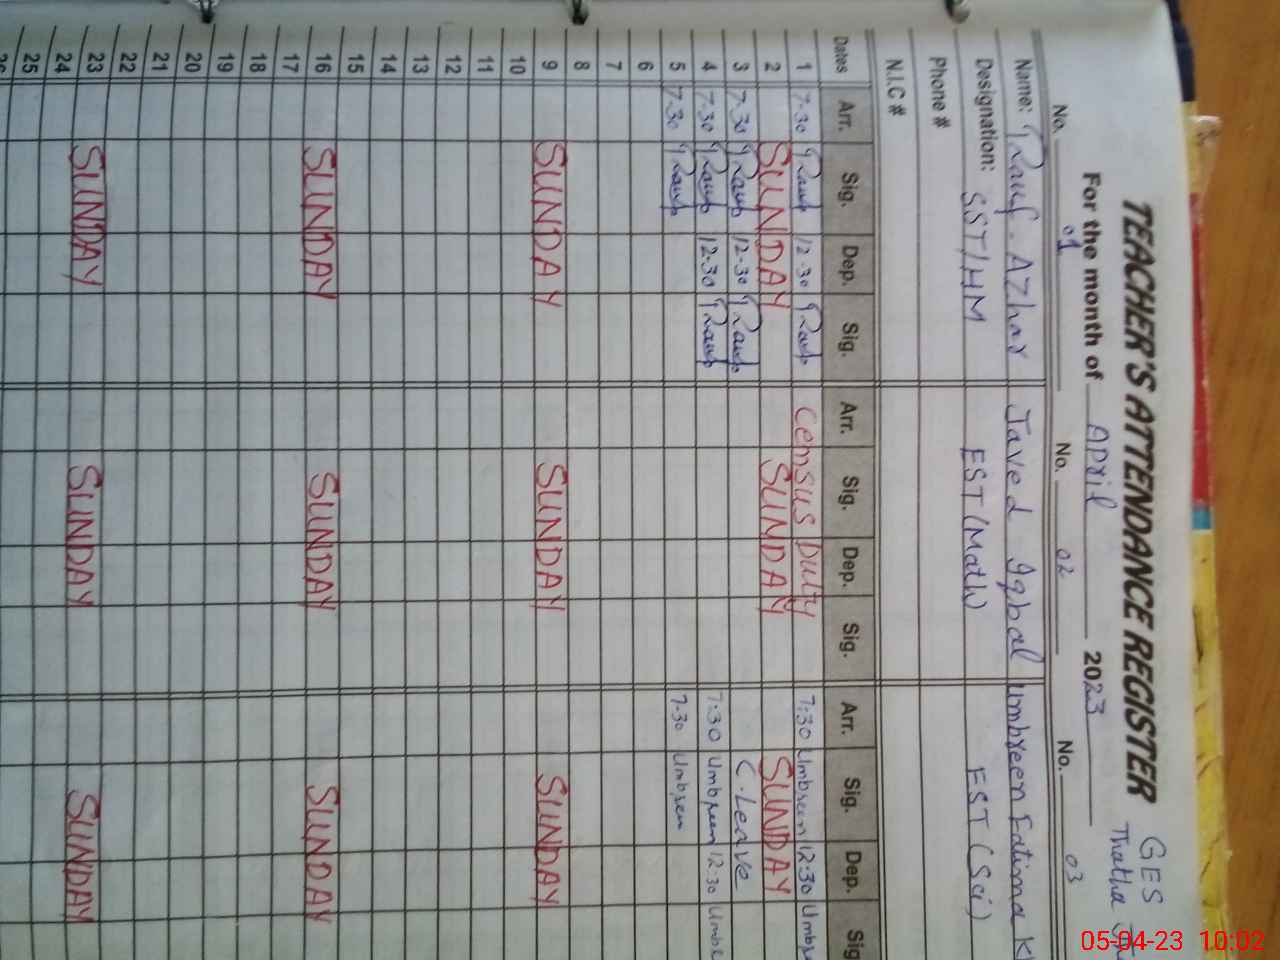 TEACHER'S ATTENDANCE REGISTER
GES
Thatha
For the month of April 2023
No. 01 No. 02 No. 03
Name: Rauf Azhar Javed Iqbal Umbreen Fatima
Designation: SST/HM EST(Math) EST(Sci)
Phone #
N.I.C #
Dates Arr. Sig. Dep. Sig. Arr. Sig. Dep. Sig. Arr. Sig. Dep. Sig
1 7.30 Rauf 12.30 Rauf Census Duty 7:30 Umbreen 12:30
2 SUNDAY SUNDAY SUNDAY
3 7.30 Rauf 12.30 Rauf C.Leave
4 7.30 Rauf 12.30 Rauf 7:30 Umbreen 12:30
5 7.30 Rauf 7.30 Umbreen
6
7
8
9 SUNDAY SUNDAY SUNDAY
10
11
12
13
14
15
16 SUNDAY SUNDAY SUNDAY
17
18
19
20
21
22
23 SUNDAY SUNDAY SUNDAY
24
25
26
05-04-23 10:02